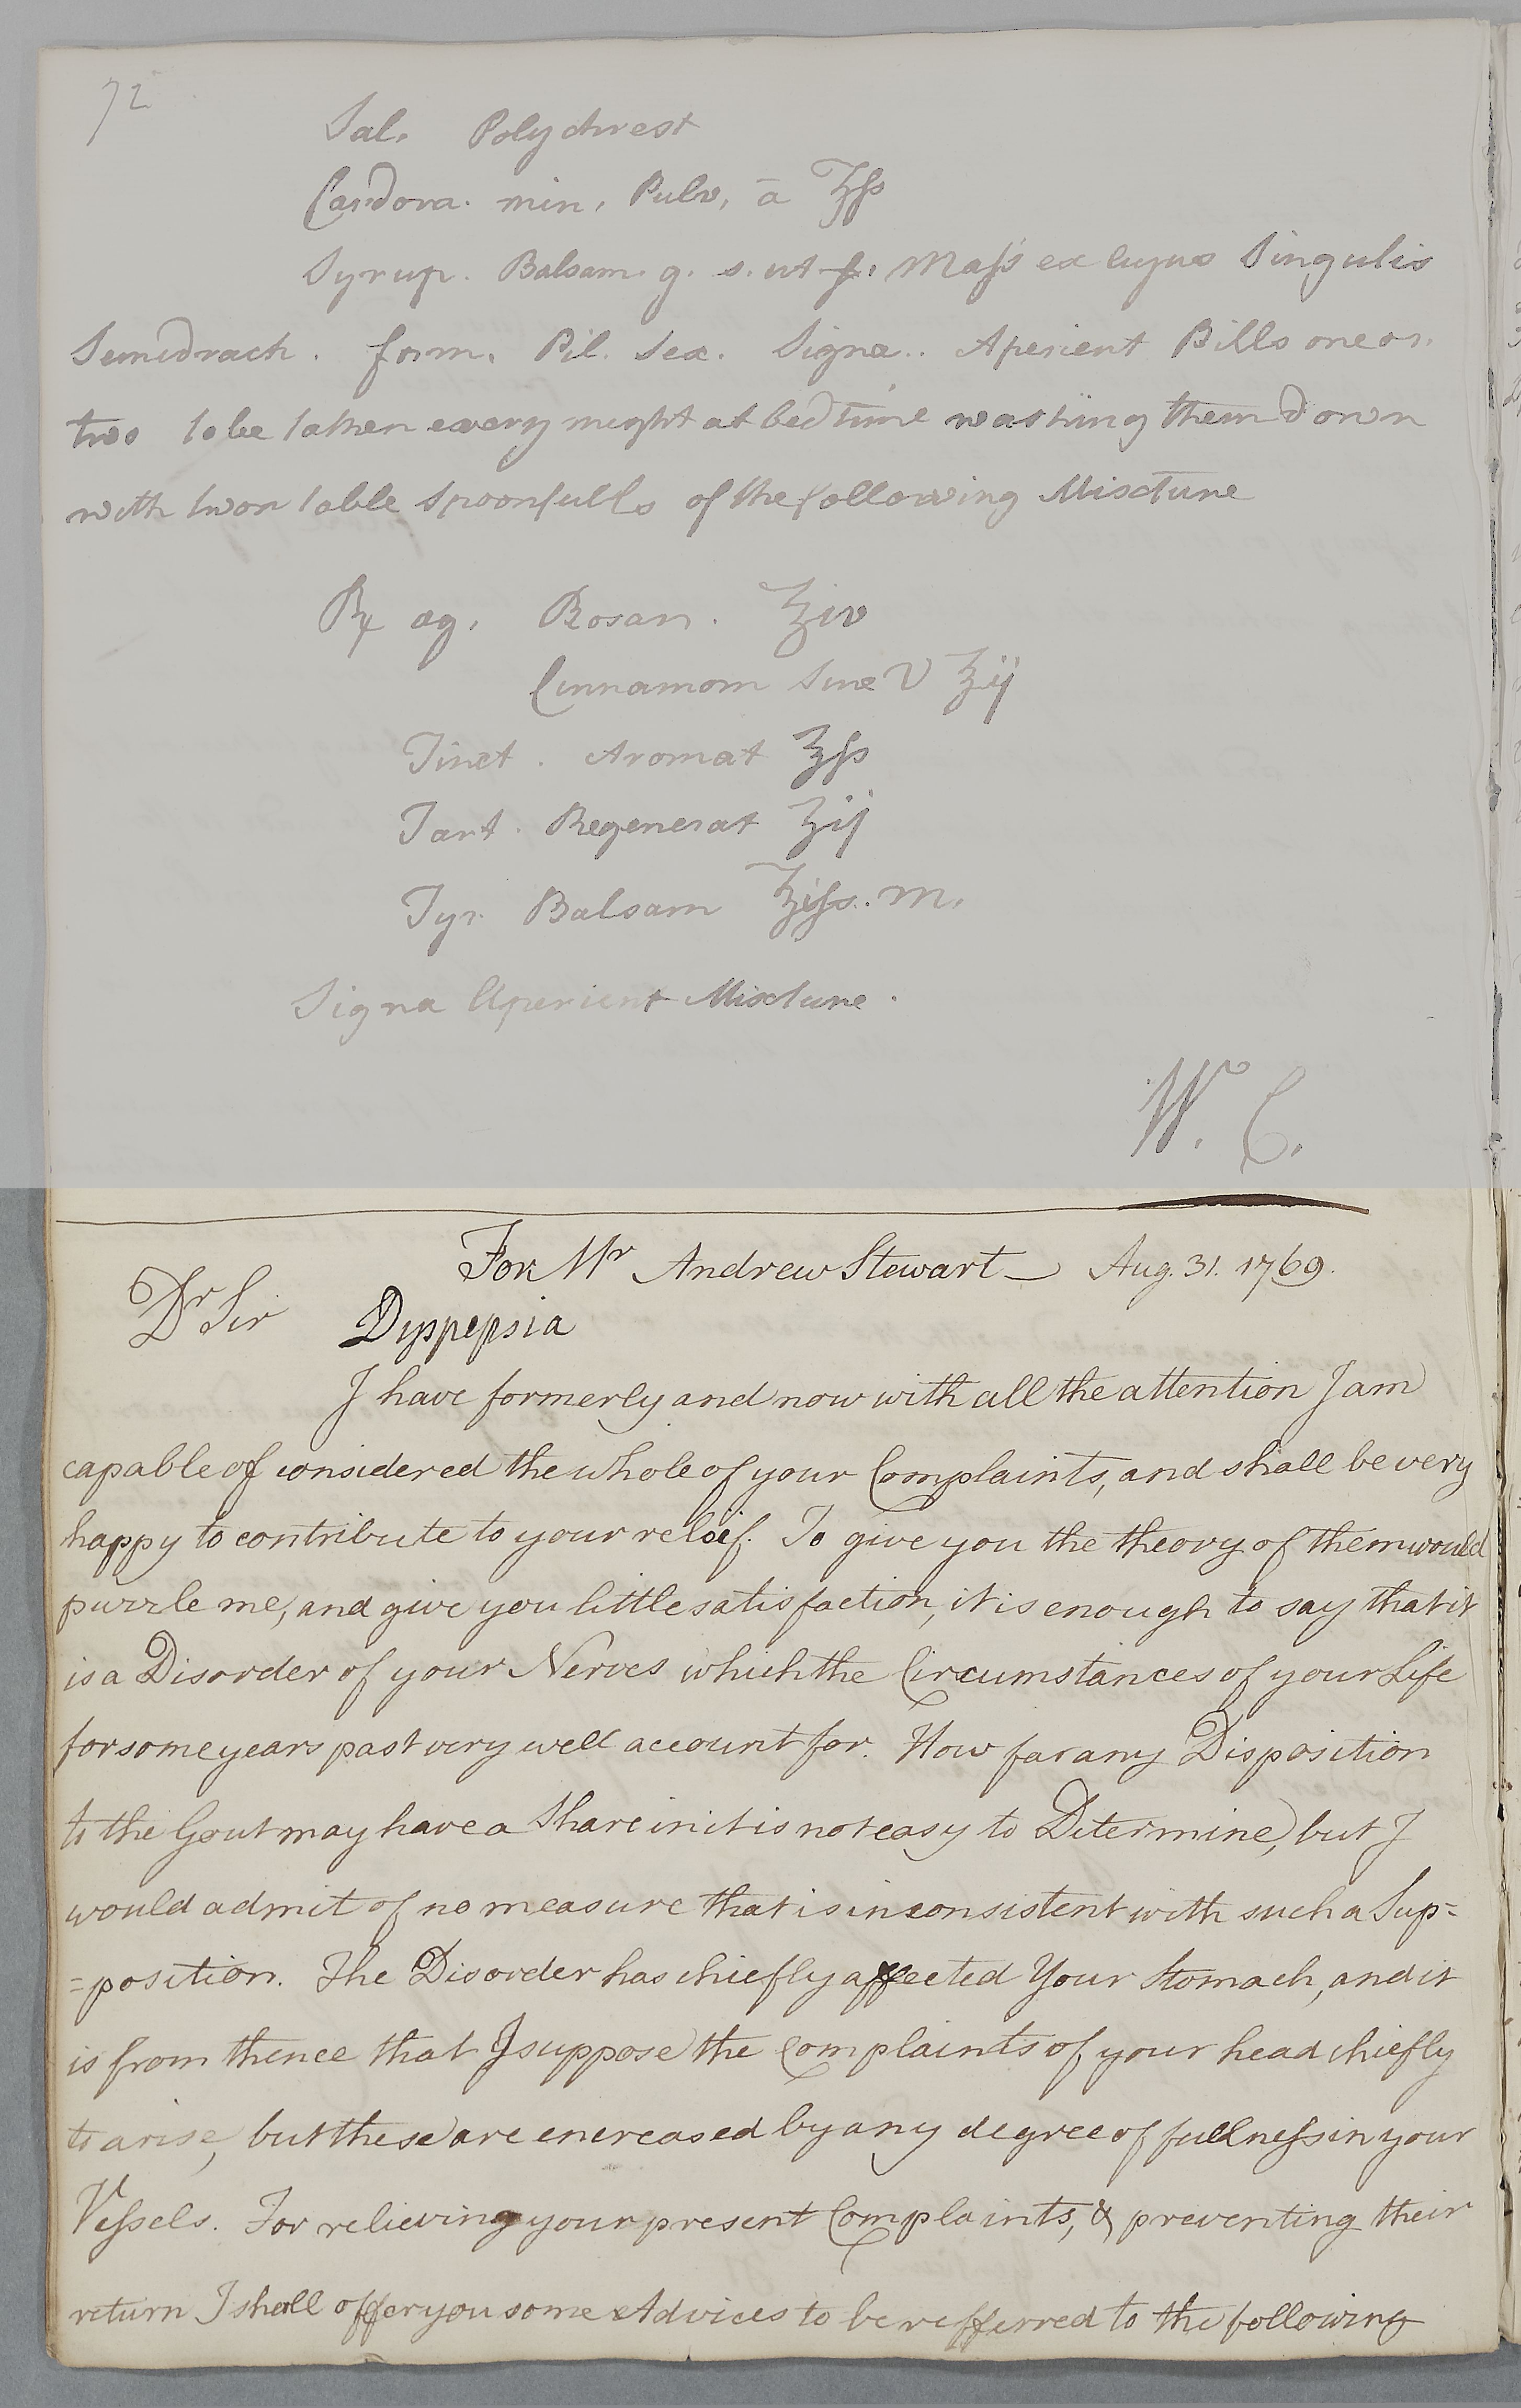 72
Sal. Polychrest
Cardom. min. Pulv. a ʒſs
Syrup. Balsam. q. s. ut f. Maſs ex cujus Singulis
Semidrach. form. Pil. Sex. Signa.. Aperient Pills one or
two to be taken every night at bed time washing them down
with two table spoonfulls of the following Mixture
℞ aq. Rosar. ℥iv
Cinnamom Sine V ℥ij
Tinct. Aromat ℥ſs
Tart. Regenerat ʒij
Syr. Balsam ℥iſs. M.
Signa Aperient Mixture.
W. C.
For Mr Andrew Stewart — Aug. 31. 1769.
Dr Sir Dyspepsia
I have formerly and now with all the attention I am
capable of considered the whole of your Complaints, and shall be very
happy to contribute to your releif. To give you the theory of them would
puzzle me, and give you little satisfaction, it is enough to say that it
is a Disorder of your Nerves which the Circumstances of your Life
for some years past very well account for. How far any Disposition
to the Gout may have a Share in it is not easy to Determine, but I
would admit of no measure that is inconsistent with such a Sup=
=position. The Disorder has chiefly affected Your Stomach, and it
is from thence that I suppose the Complaints of your head chiefly
to arise, but these are encreased by any degree of fullneſs in your
Veſsels. For relieving your present Complaints, & preventing their
return I shall offer you some Advices to be refferred to the following